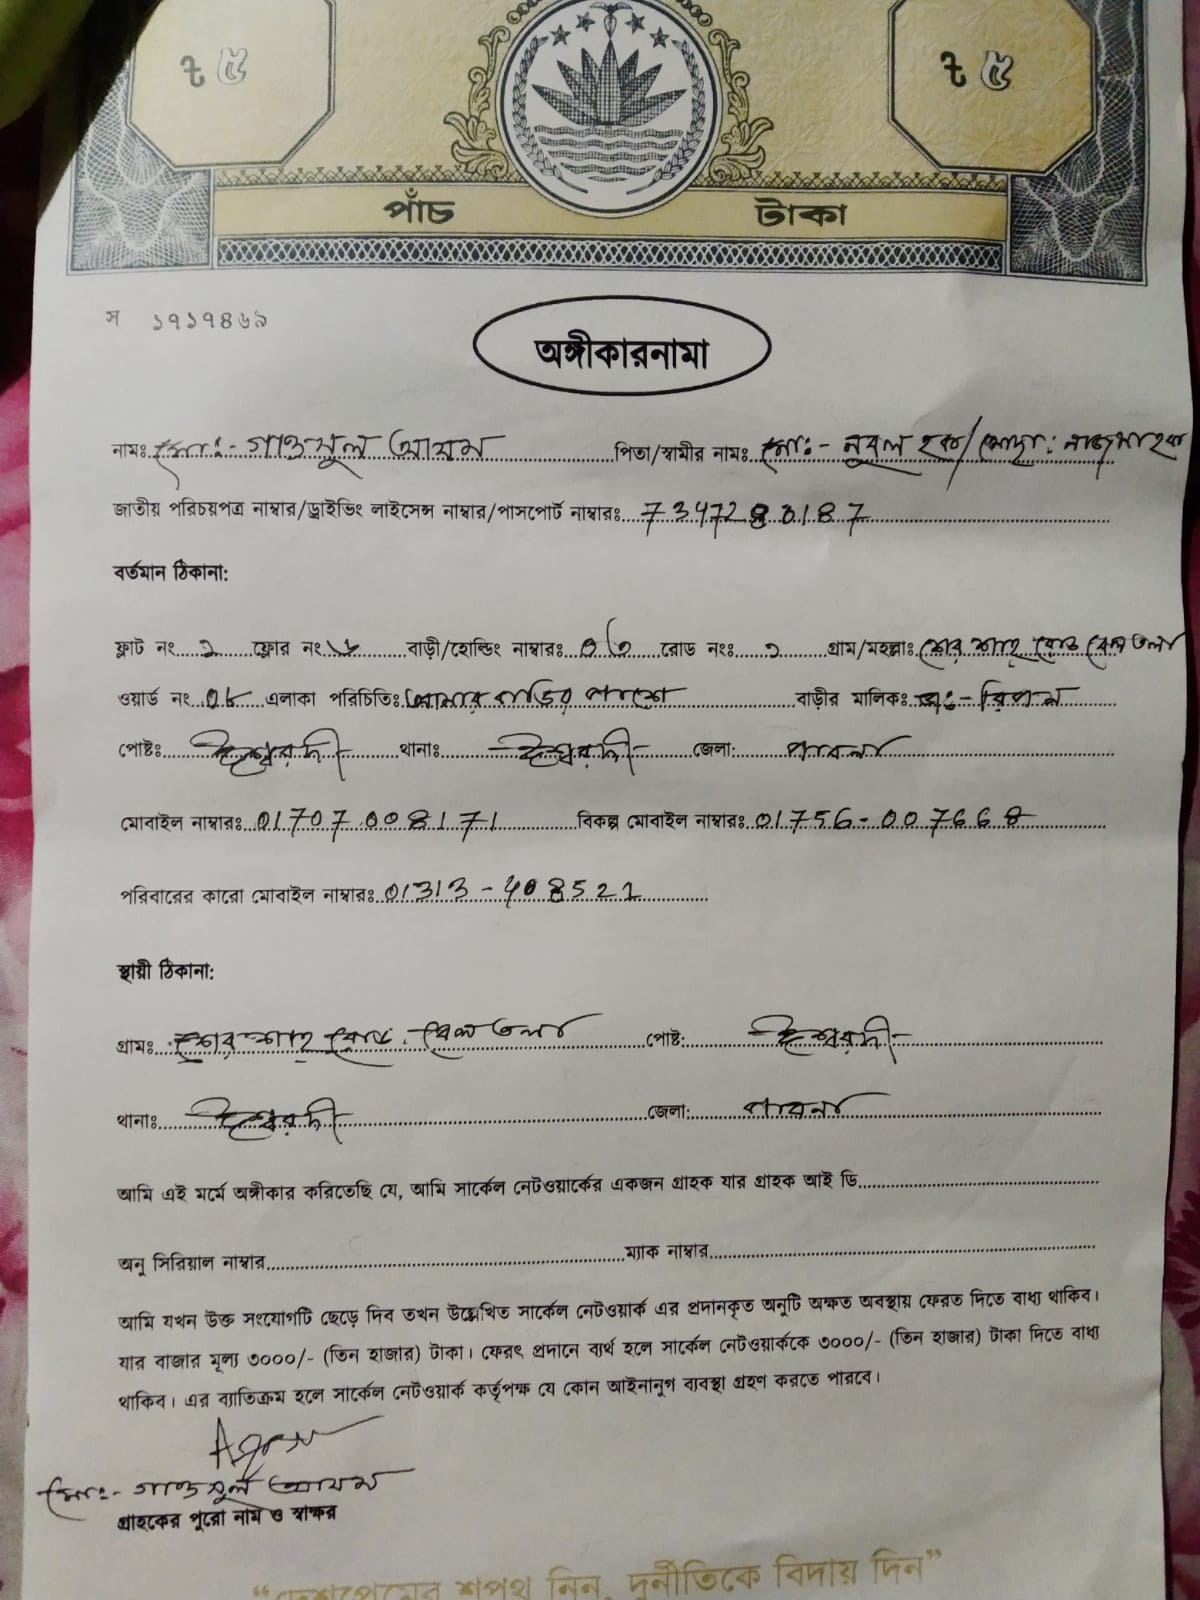 ৳ ৫ ৳ ৫
পাঁচ টাকা
স ১৭১৭৪৬৯
অঙ্গীকারনামা
নামঃ মোঃ- গাওসুল আযম পিতা/স্বামীর নামঃ মোঃ- নুরুল হক/মোছাঃ নাজমা হক
জাতীয় পরিচয়পত্র নাম্বার/ড্রাইভিং লাইসেন্স নাম্বার/পাসপোর্ট নাম্বারঃ 7347280187
বর্তমান ঠিকানা:
ফ্লাট নং ১ ফ্লোর নং বাড়ী/হোল্ডিং নাম্বারঃ রোড নংঃ ১ গ্রাম/মহল্লাঃ শের শাহ্ রোড বেল তলা
ওয়ার্ড নং এলাকা পরিচিতিঃ বাড়ির পাশে বাড়ীর মালিকঃ রিপন
পোষ্টঃ ঈশ্বরদী থানাঃ ঈশ্বরদী জেলা: পাবনা
মোবাইল নাম্বারঃ 01707008171 বিকল্প মোবাইল নাম্বারঃ 01756-007668
পরিবারের কারো মোবাইল নাম্বারঃ 01313-408521
স্থায়ী ঠিকানা:
গ্রামঃ শের শাহ্ রোড বেল তলা পোষ্ট: ঈশ্বরদী
থানাঃ ঈশ্বরদী জেলা: পাবনা
আমি এই মর্মে অঙ্গীকার করিতেছি যে, আমি সার্কেল নেটওয়ার্কের একজন গ্রাহক যার গ্রাহক আই ডি
অনু সিরিয়াল নাম্বার ম্যাক নাম্বার
আমি যখন উক্ত সংযোগটি ছেড়ে দিব তখন উল্লেখিত সার্কেল নেটওয়ার্ক এর প্রদানকৃত অনুটি অক্ষত অবস্থায় ফেরত দিতে বাধ্য থাকিব।
যার বাজার মূল্য ৩০০০/- (তিন হাজার) টাকা। ফেরৎ প্রদানে ব্যর্থ হলে সার্কেল নেটওয়ার্ককে ৩০০০/- (তিন হাজার) টাকা দিতে বাধ্য
থাকিব। এর ব্যাতিক্রম হলে সার্কেল নেটওয়ার্ক কর্তৃপক্ষ যে কোন আইনানুগ ব্যবস্থা গ্রহণ করতে পারবে।
মোঃ- গাওসুল আযম
গ্রাহকের পুরো নাম ও স্বাক্ষর
“দেশপ্রেমের শপথ নিন, দুর্নীতিকে বিদায় দিন”